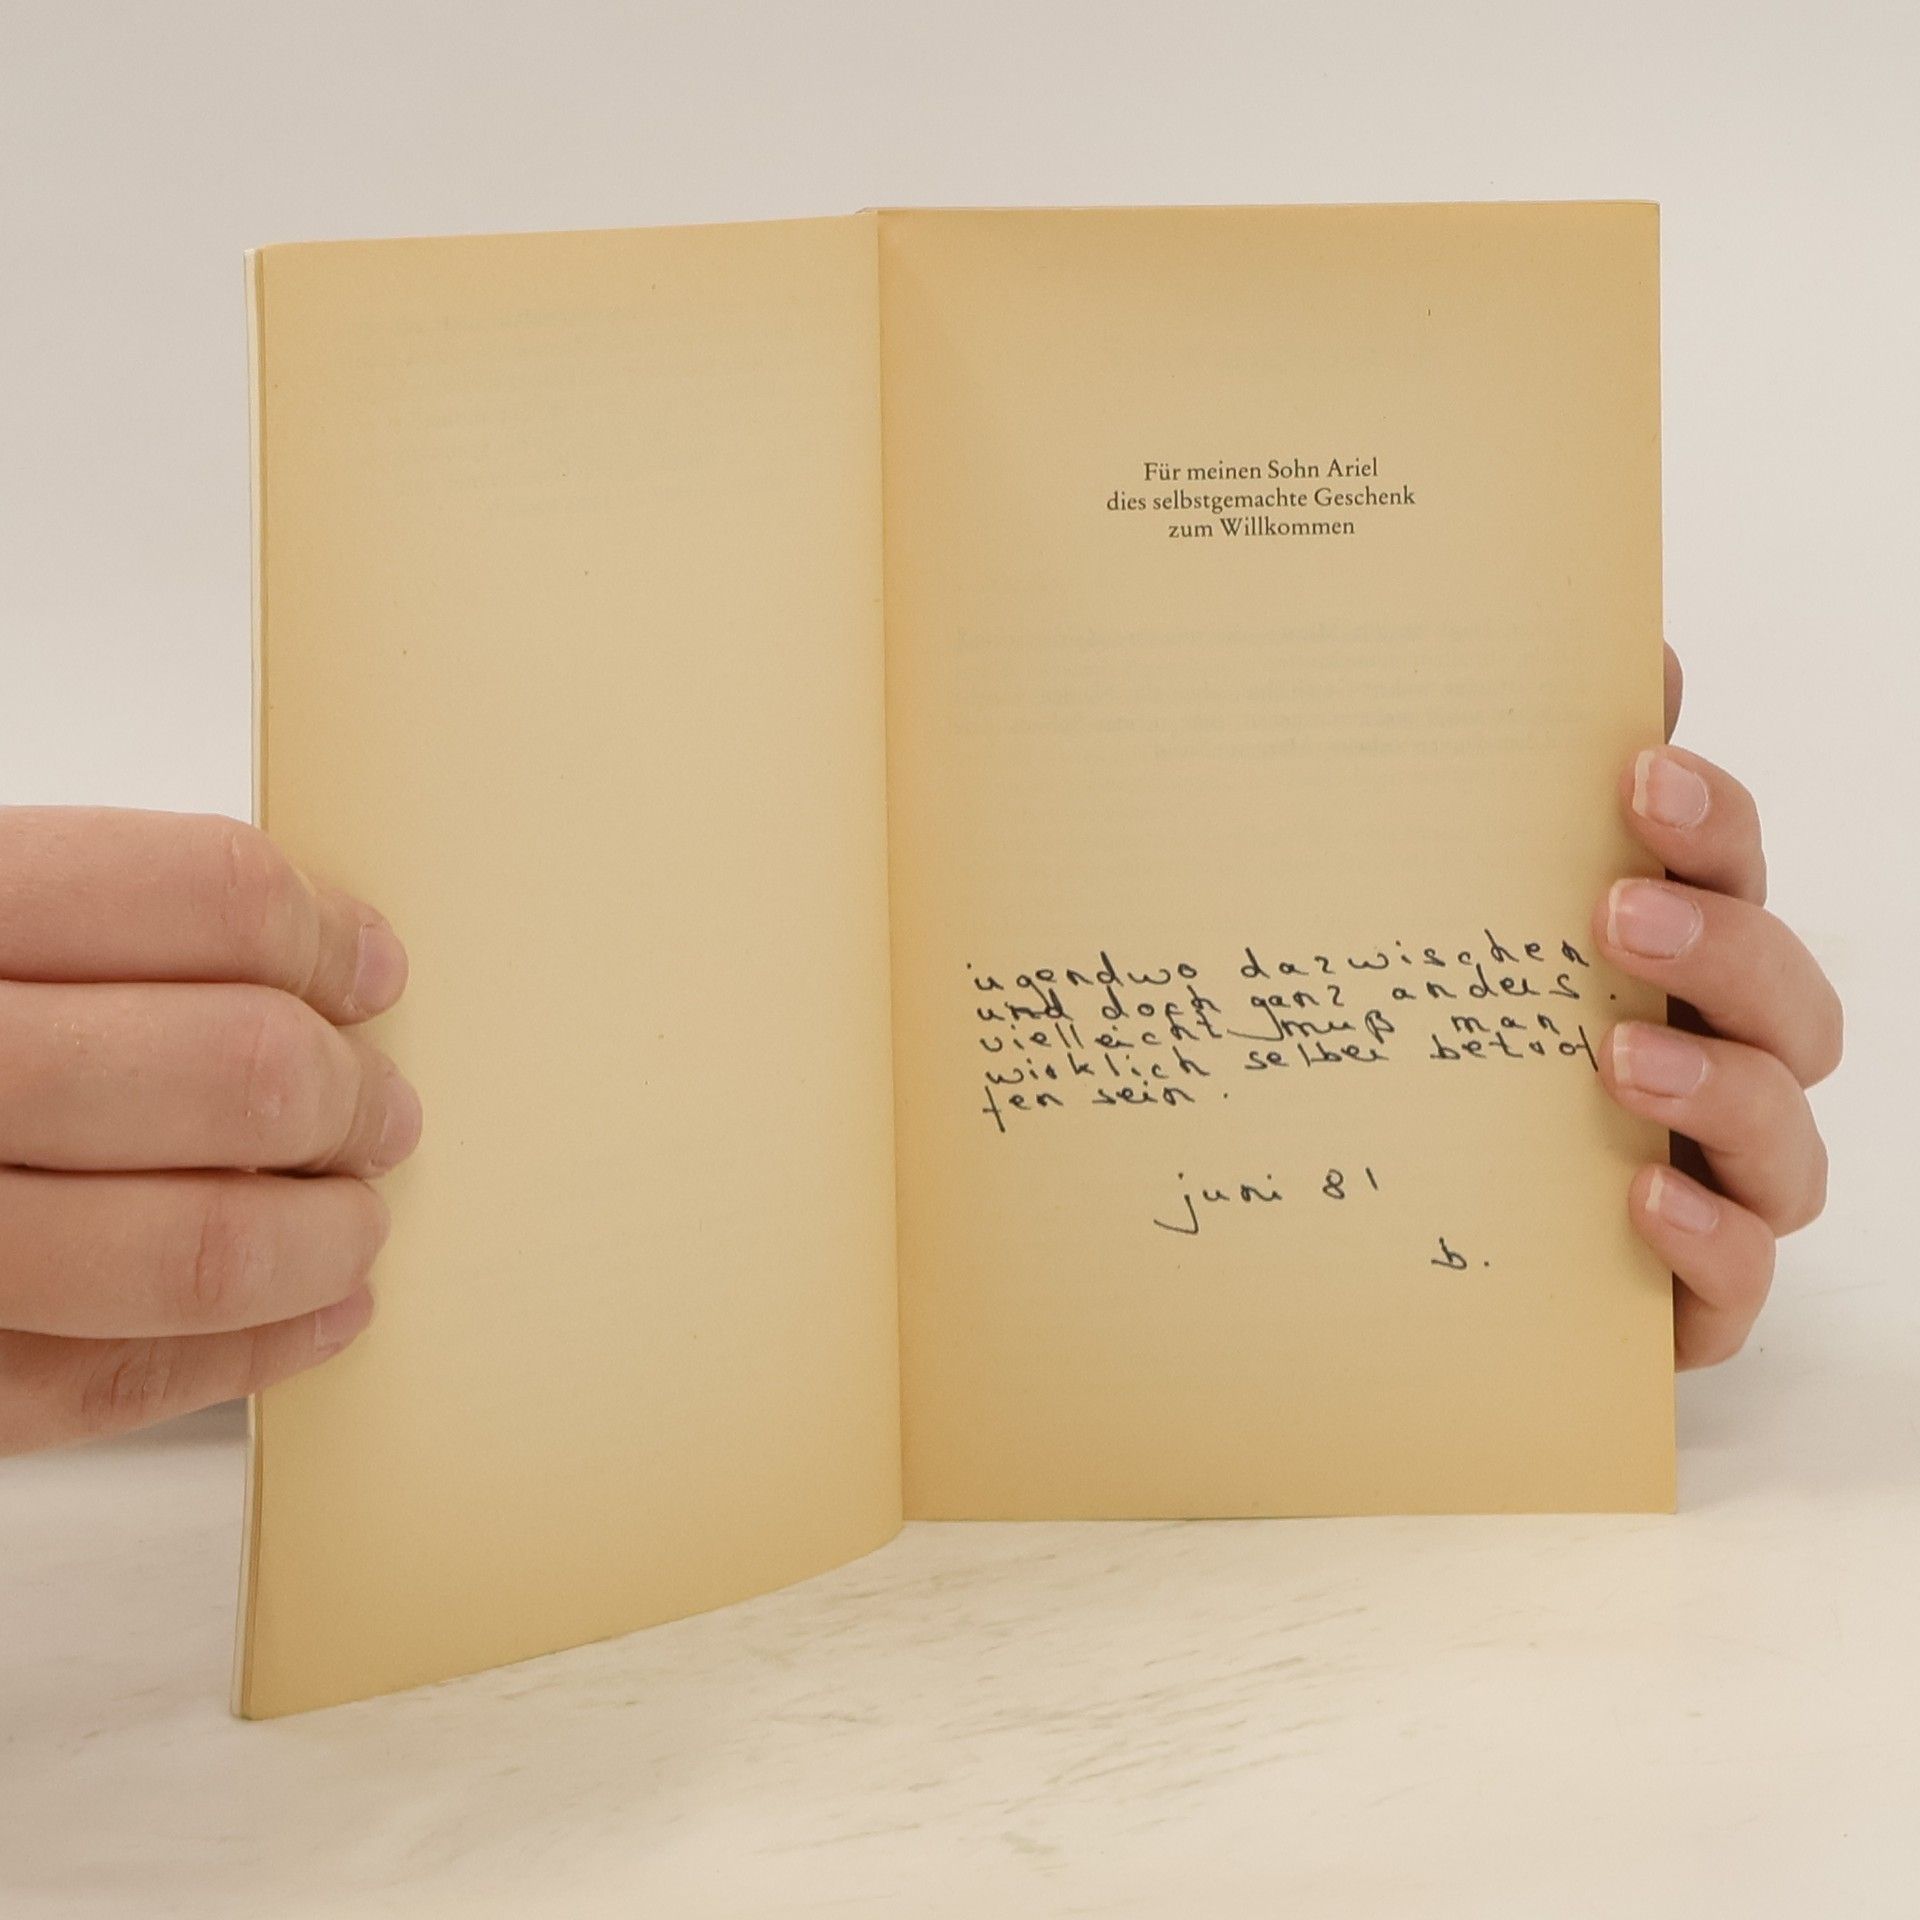 Für meinen Sohn Ariel
dies selbstgemachte Geschenk
zum Willkommen
irgendwo dazwischen
und doch ganz anders.
vielleicht muß man
wirklich selber betrof
fen sein.
juni 81
b.